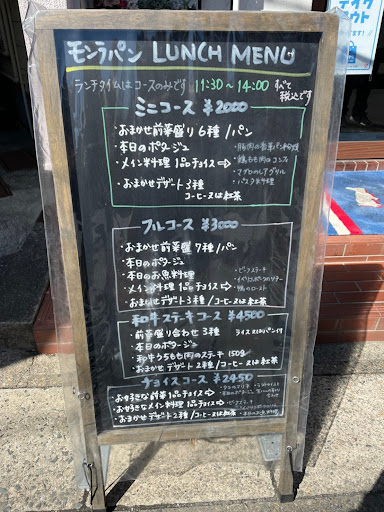 テイクアウト
モンラパン LUNCH MENU
ランチタイムはコースのみです 11:30～14:00 すべて税込です
ミニコース ¥2000
・おまかせ前菜盛り6種/パン
・本日のポタージュ
・メイン料理 1品チョイス⇨
・豚肉の香草パン粉焼
・鶏もも肉のコンフィ
・マグロのレアグリル
・おまかせデザート3種
コーヒー又は紅茶
フルコース ¥3000
・おまかせ前菜盛り7種/パン
・本日のポタージュ
・本日のお魚料理
・メイン料理 1品チョイス⇨
・おまかせデザート3種/コーヒー又は紅茶
・ビーフステーキ
・鴨のロースト
和牛ステーキコース ¥4500
・前菜盛り合わせ3種
ライス又はパン付
・本日のポタージュ
・和牛うちもも肉のステーキ 150g
・おまかせデザート2種/コーヒー又は紅茶
チョイスコース ¥2450
・お好きな前菜1品チョイス⇨
・お好きなメイン料理1品チョイス⇨
・おまかせデザート2種/コーヒー又は紅茶